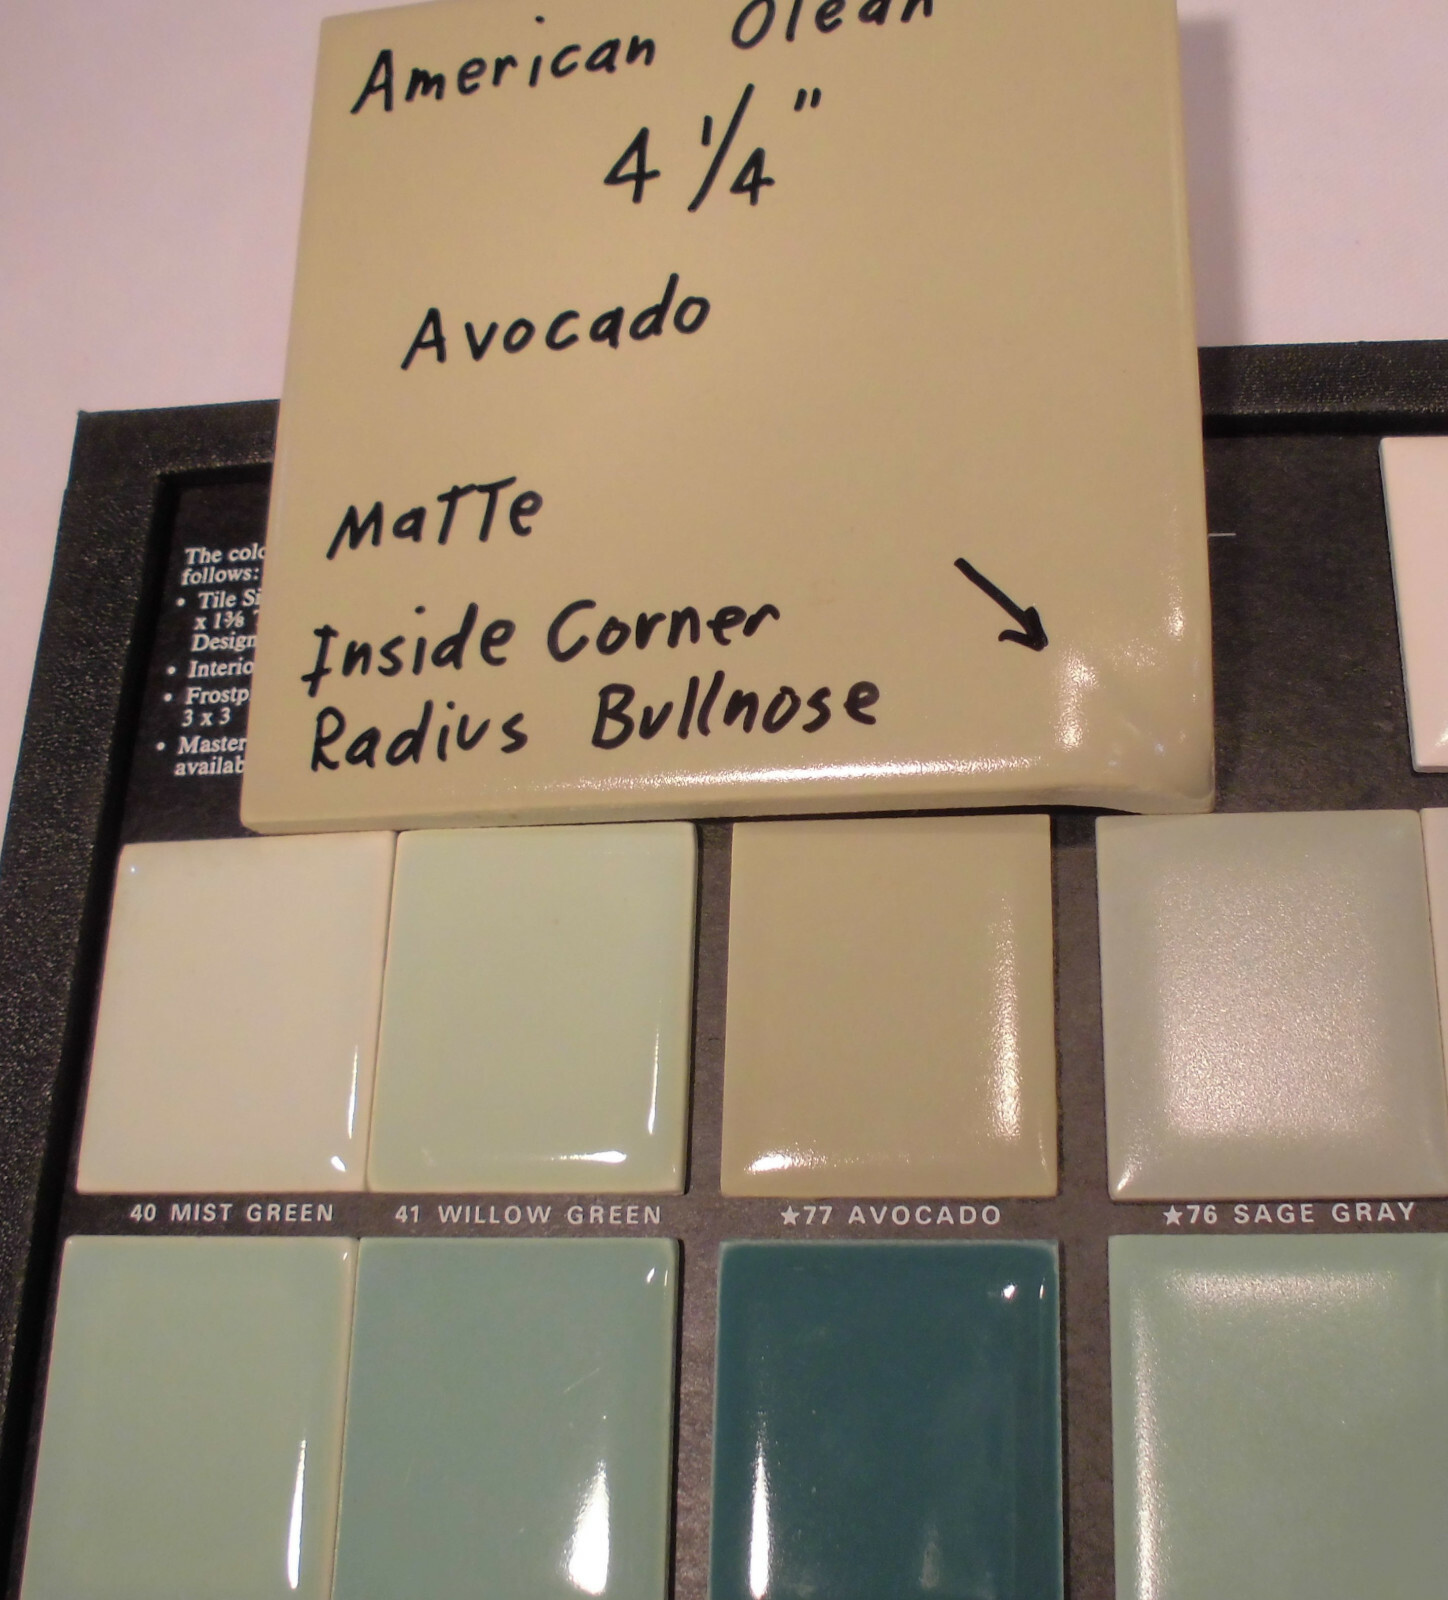 American Olean
4 1/4"
Avocado
Matte
Inside Corner
Radius Bullnose
The
follows:
• Tile
x 1⅜
Design
•
•
3 x 3
• Master
40 MIST GREEN
41 WILLOW GREEN
★77 AVOCADO
★76 SAGE GRAY